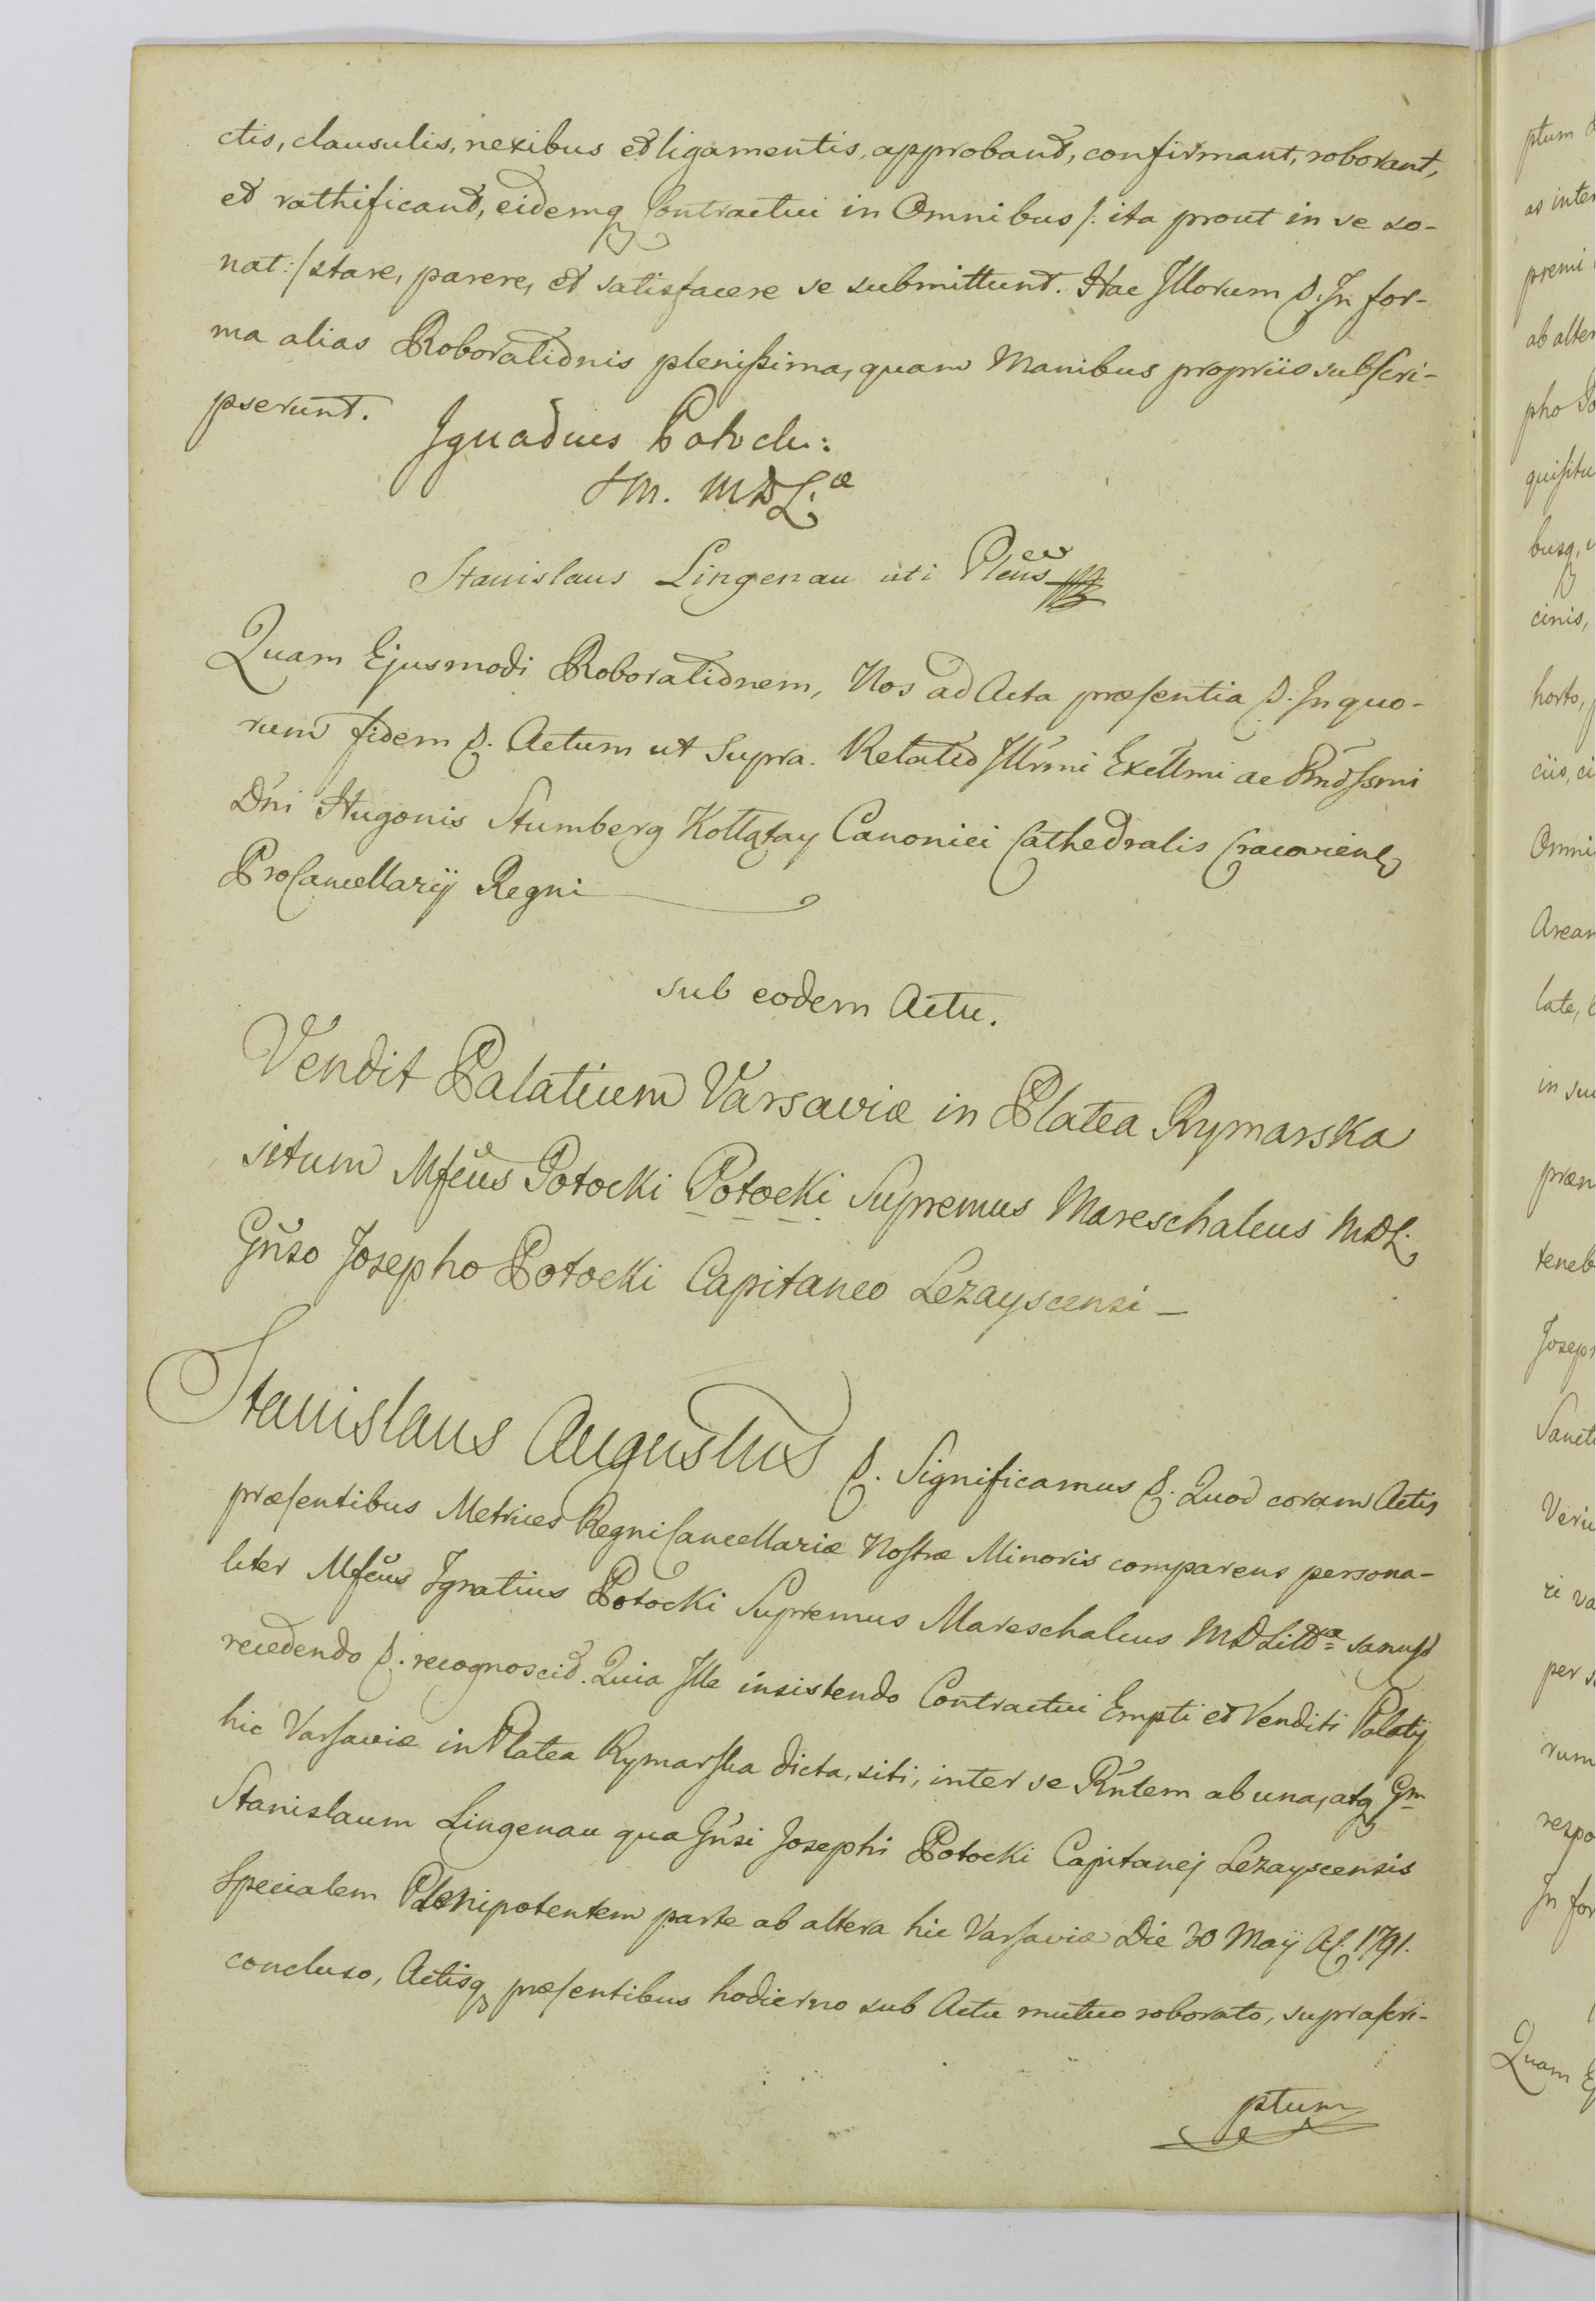 ctis, clausulis, nexibus et ligamentis, approbant, confirmant, roborant,
et rathificant, eidemq Contractui in Omnibus /: ita prout in se so-
nat :/ stare, parere, et satisfacere se submittunt. Hac Illorum p. In for-
ma alias Roborationis plenissima, quam Manibus propriis subscri-
pserunt.
Ignatius Potocki:
SM. MDL:æ
Stanislaus Lingenau uti Pleñs
Quam Ejusmodi Roborationem, Nos ad Acta præsentia p. In quo-
rum fidem p. Actum ut Supra. Relatio Illrmi Excllmi ac Rmdssmi
Dni Hugonis Stumberg Kołłątay Canonici Cathedralis Cracoviens
ProCancellarij Regni
sub eodem Actu.
Vendit Palatium Varsaviæ in Platea Rymarska
situm Mfcus Potocki Potocki Supremus Mareschalcus MDL.
Gñso Josepho Potocki Capitaneo Lezayscensi _
Stanislaus Augustus p. Significamus p. Quod coram Actis
præsentibus Metrices Regni Cancellariæ Nostræ Minoris comparens persona-
liter Mfcus Ignatius Potocki Supremus Mareschalcus MDLittæ sanusq
recedendo p. recognoscit. Quia Ille insistendo Contractui Empti et Venditi Palatij
hic Varsaviæ in Platea Rymarska dicta, siti, inter se Rñtem ab una, atq Gm
Stanislaum Lingenau qua Gñsi Josephi Potocki Capitanej Lezayscensis
Specialem Plenipotentem parte ab altera hic Varsaviæ Die 30 Maij A. 1791.
concluso, Actisq præsentibus hodierno sub Actu mutuo roborato, suprascri-
ptum
ptum
as inter
premi
ab alter
pho
quisitu
busq
cinis,
horto,
ciis, ci
Omni
Arean
late,
in su
præn
teneb
Joseph
Sancti
per s
rum
respo
In for
Quam